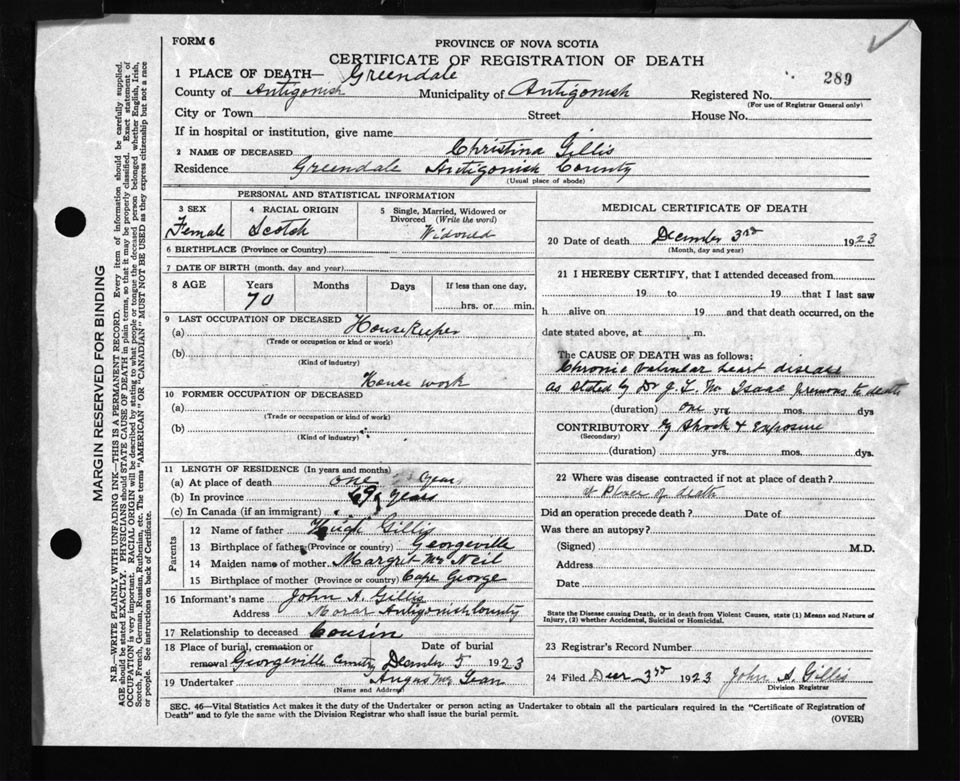 FORM 6
PROVINCE OF NOVA SCOTIA
289
CERTIFICATE OF REGISTRATION OF DEATH
1 PLACE OF DEATH— Greendale
County of Antigonish Municipality of Antigonish Registered No.
(For use of Registrar General only)
City or Town Street House No.
If in hospital or institution, give name
2 NAME OF DECEASED Christina Gillis
Residence Greendale Antigonish County
(Usual place of abode)
PERSONAL AND STATISTICAL INFORMATION
3 SEX 4 RACIAL ORIGIN 5 Single, Married, Widowed or
Divorced (Write the word)
Female Scotch Widowed
6 BIRTHPLACE (Province or Country)
7 DATE OF BIRTH (month, day and year)
8 AGE Years Months Days If less than one day,
70 hrs. or min.
9 LAST OCCUPATION OF DECEASED House Keeper
(a)
(Trade or occupation or kind or work)
(b)
(Kind of industry)
House work
10 FORMER OCCUPATION OF DECEASED
(a)
(Trade or occupation or kind of work)
(b)
(Kind of industry)
11 LENGTH OF RESIDENCE (In years and months)
(a) At place of death one years
(b) In province 69 years
(c) In Canada (if an immigrant)
Parents
12 Name of father Hugh Gillis
13 Birthplace of father (Province or country) Georgeville
14 Maiden name of mother Margrie Mc Neil
15 Birthplace of mother (Province or country) Cape George
16 Informant's name John A. Gillis
Address Morar Antigonish County
17 Relationship to deceased Cousin
18 Place of burial, cremation or Date of burial
removal Georgeville Cmty December 5 1923
19 Undertaker Angus Mc Lean
(Name and Address)
MEDICAL CERTIFICATE OF DEATH
20 Date of death December 3rd 1923
(Month, day and year)
21 I HEREBY CERTIFY, that I attended deceased from
19 to 19 that I last saw
h alive on 19 and that death occurred, on the
date stated above, at m.
The CAUSE OF DEATH was as follows:
Chronic Valvular heart disease
as stated by Dr J. L. Mc Isaac previous to death
(duration) one yrs. mos. dys
CONTRIBUTORY by Shock & Exposure
(Secondary)
(duration) yrs. mos. dys.
22 Where was disease contracted if not at place of death?
at Place of death
Did an operation precede death? Date of
Was there an autopsy?
(Signed) M.D.
Address
Date
State the Disease causing Death, or in death from Violent Causes, state (1) Means and Nature of
Injury, (2) whether Accidental, Suicidal or Homicidal.
23 Registrar's Record Number
24 Filed Decr 3rd 1923 John A. Gillis
Division Registrar
SEC. 46—Vital Statistics Act makes it the duty of the Undertaker or person acting as Undertaker to obtain all the particulars required in the "Certificate of Registration of
Death" and to fyle the same with the Division Registrar who shall issue the burial permit.
(OVER)
MARGIN RESERVED FOR BINDING
N.B.—WRITE PLAINLY WITH UNFADING INK—THIS IS A PERMANENT RECORD. Every item of information should be carefully supplied.
AGE should be stated EXACTLY. PHYSICIANS should STATE CAUSE OF DEATH in plain terms, so that it may be properly classified. Exact statement of
OCCUPATION is very important. RACIAL ORIGIN will be described by stating to what people or tongue the deceased person belonged whether English, Irish,
Scotch, French, German, Russian, Ruthenian, etc. The terms "AMERICAN" OR "CANADIAN" MUST NOT BE USED as they express citizenship but not a race
or people. See instructions on back of Certificate.